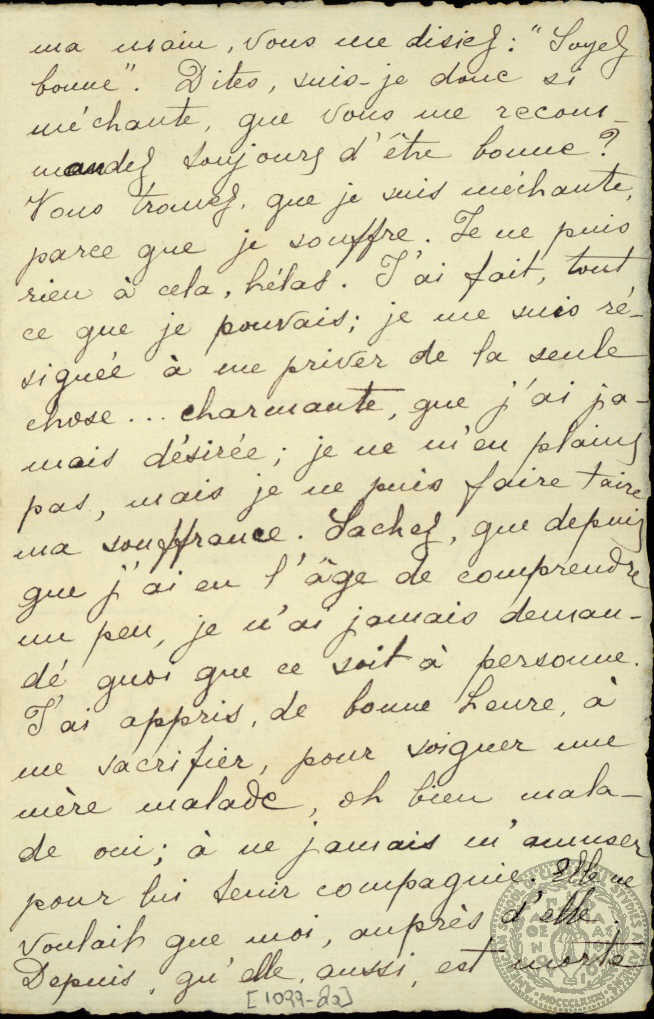 ma main, vous me disiez: "Soyez
bonne". Dites, suis-je donc si
méchante, que vous me recom-
mandez toujours d'être bonne?
Vous trouvez, que je suis méchante,
parce que je souffre. Je ne puis
rien à cela, hélas. J'ai fait, tout
ce que je pouvais; je me suis ré-
signée à me priver de la seule
chose... charmante, que j'ai ja-
mais désirée; je ne m'en plains
pas, mais je ne puis faire taire
ma souffrance. Sachez, que depuis
que j'ai eu l'âge de comprendre
un peu, je n'ai jamais deman-
dé quoi que ce soit à personne.
J'ai appris, de bonne heure, à
me sacrifier, pour soigner une
mère malade, oh bien mala-
de oui; à ne jamais m'amuser
pour lui tenir compagnie. Elle ne
voulait que moi, auprès d'elle.
Depuis, qu'elle, aussi, est morte
[1077-22]